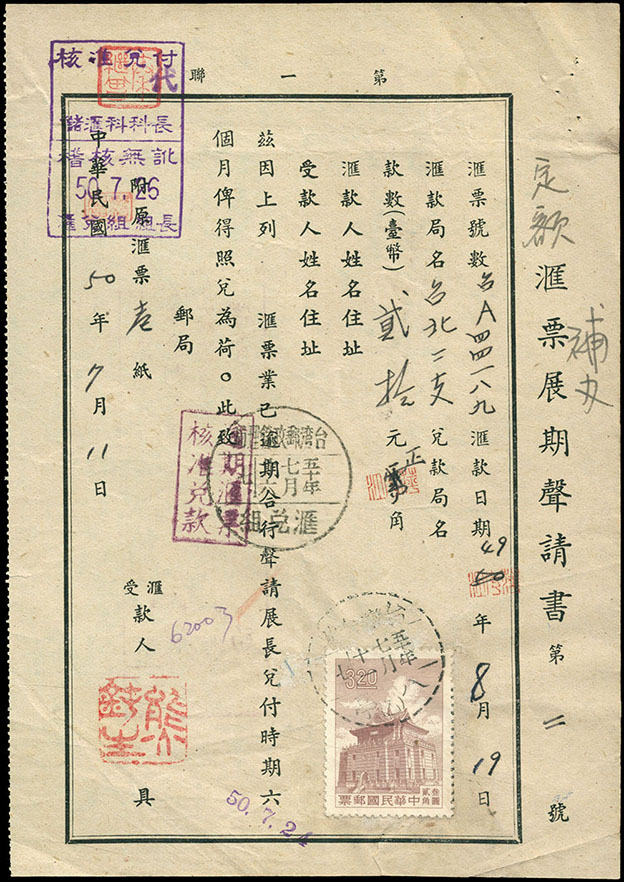 第一聯
定額匯票展期聲請書 第二號
補支
匯票號數 台A四四一八九 匯款日期 49年8月19日
匯款局名 台北二支 兌款局名
款數(臺幣) 貳拾元正角
匯款人姓名住址
受款人姓名住址
茲因上列 匯票業已逾期合行聲請展長兌付時期六
個月俾得照兌為荷。此致
郵局
附原匯票壱紙
匯
受款人 具
中華民國50年7月11日
核准兌付
代
儲匯科科長
稽核無訛
50.7.26
匯兌組組長
逾期匯票
核准兌款
五十年
七月
匯兌組
62003
50.7.24
五十年
3.20
叁圓
貳角
中華民國郵票